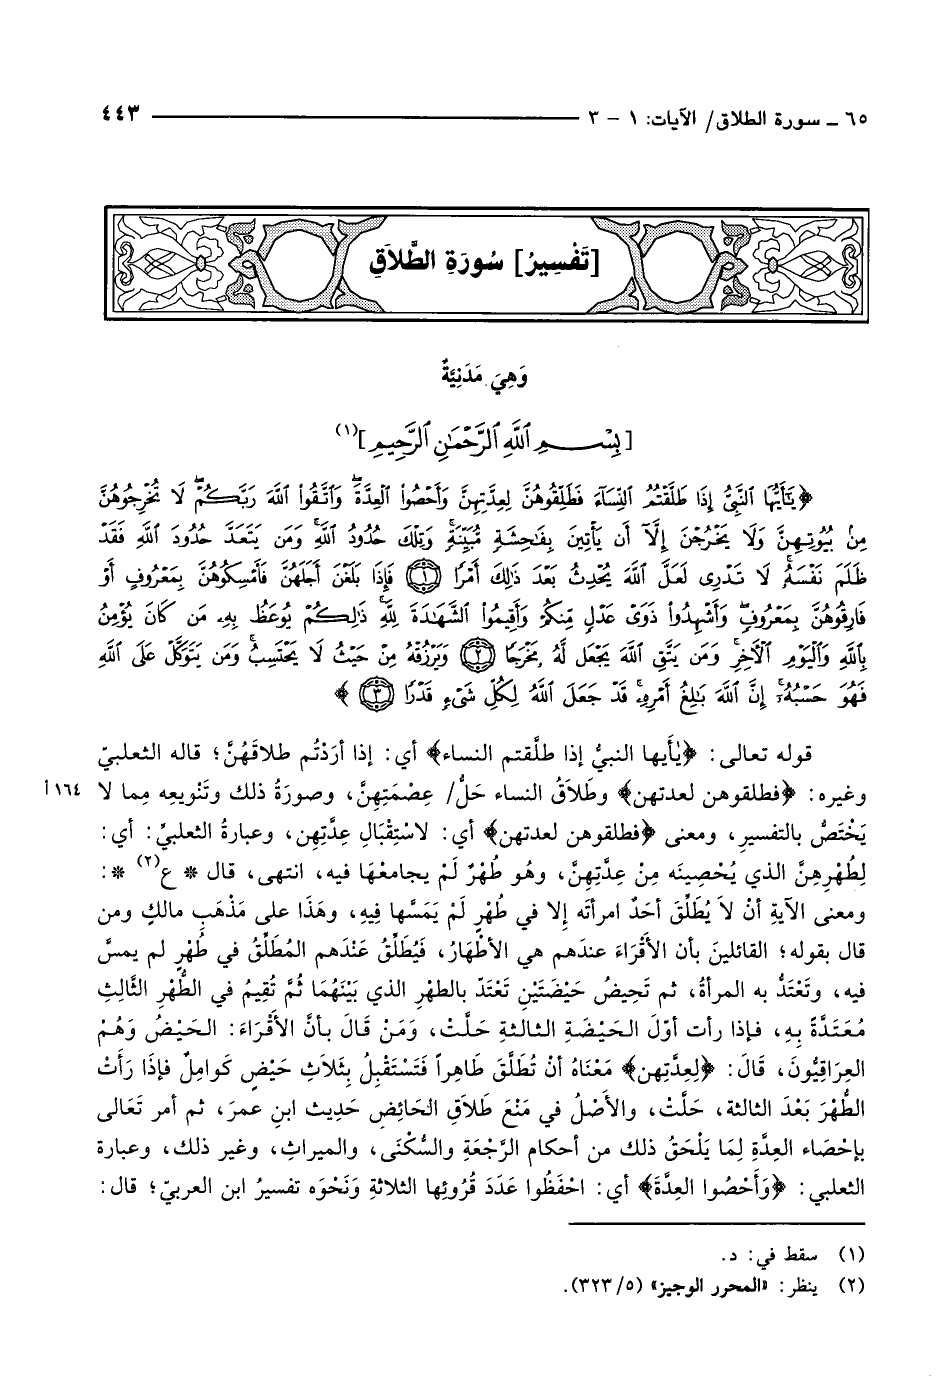 ٦٥ ـ سورة الطلاق/ الآيات: ١ - ٣ ٤٤٣
[تَفْسِيرُ] سُورَةِ الطَّلاَقِ
وَهِيَ مَدَنِيَّةٌ
[بِسْمِ ٱللَّهِ ٱلرَّحْمَٰنِ ٱلرَّحِيمِ](١)
﴿يَٰٓأَيُّهَا ٱلنَّبِىُّ إِذَا طَلَّقْتُمُ ٱلنِّسَآءَ فَطَلِّقُوهُنَّ لِعِدَّتِهِنَّ وَأَحْصُوا۟ ٱلْعِدَّةَ ۖ وَٱتَّقُوا۟ ٱللَّهَ رَبَّكُمْ ۖ لَا تُخْرِجُوهُنَّ
مِنۢ بُيُوتِهِنَّ وَلَا يَخْرُجْنَ إِلَّآ أَن يَأْتِينَ بِفَٰحِشَةٍ مُّبَيِّنَةٍ ۚ وَتِلْكَ حُدُودُ ٱللَّهِ ۚ وَمَن يَتَعَدَّ حُدُودَ ٱللَّهِ فَقَدْ
ظَلَمَ نَفْسَهُۥ ۚ لَا تَدْرِى لَعَلَّ ٱللَّهَ يُحْدِثُ بَعْدَ ذَٰلِكَ أَمْرًا ۝١ فَإِذَا بَلَغْنَ أَجَلَهُنَّ فَأَمْسِكُوهُنَّ بِمَعْرُوفٍ أَوْ
فَارِقُوهُنَّ بِمَعْرُوفٍ ۖ وَأَشْهِدُوا۟ ذَوَىْ عَدْلٍ مِّنكُمْ وَأَقِيمُوا۟ ٱلشَّهَٰدَةَ لِلَّهِ ۚ ذَٰلِكُمْ يُوعَظُ بِهِۦ مَن كَانَ يُؤْمِنُ
بِٱللَّهِ وَٱلْيَوْمِ ٱلْأَخِرِ ۚ وَمَن يَتَّقِ ٱللَّهَ يَجْعَل لَّهُۥ مَخْرَجًا ۝٢ وَيَرْزُقْهُ مِنْ حَيْثُ لَا يَحْتَسِبُ ۚ وَمَن يَتَوَكَّلْ عَلَى ٱللَّهِ
فَهُوَ حَسْبُهُۥٓ ۚ إِنَّ ٱللَّهَ بَٰلِغُ أَمْرِهِۦ ۚ قَدْ جَعَلَ ٱللَّهُ لِكُلِّ شَىْءٍ قَدْرًا ۝٣﴾
قوله تعالى: ﴿يٰأَيها النبيُّ إذا طلَّقتم النساء﴾ أي: إذا أرَدْتُم طلاقَهُنَّ؛ قاله الثعلبيّ
وغيره: ﴿فطلقوهن لعدتهن﴾ وطَلَاقُ النساء حَلُّ/ عِصْمَتِهِنَّ، وصورَةُ ذلك وتَنْويعِه مِما لا ١٦٤أ
يَخْتَصُّ بالتفسيرِ، ومعنى ﴿فطلقوهن لعدتهن﴾ أي: لاسْتِقْبَالِ عِدَّتِهِن، وعبارةُ الثعلبيِّ: أي:
لِطُهْرِهِنَّ الذي يُحْصِينَه مِنْ عِدَّتِهِنَّ، وهُو طُهْرٌ لَمْ يجامعْهَا فيه، انتهى، قال * ع(٢) *:
ومعنى الآيةِ أنْ لاَ يُطَلِّقَ أحَدٌ امرأتَه إلا في طُهْرٍ لَمْ يَمَسَّها فِيهِ، وهَذَا على مَذْهَبِ مالكٍ ومن
قال بقوله؛ القائلينَ بأن الأَقْرَاءَ عندَهم هي الأطْهَارُ، فَيُطَلِّقُ عَنْدَهم المُطَلِّقُ في طُهْرٍ لم يمسَّ
فيه، وتَعْتَدُّ به المرأةُ، ثم تَحِيضُ حَيْضَتَيْنِ تَعْتَدّ بالطهرِ الذي بَيْنَهُمَا ثُمَّ تُقِيمُ في الطُّهْرِ الثَّالِثِ
مُعْتَدَّةً بِهِ، فإذا رأت أوّلَ الحَيْضَةِ الثالثةِ حَلَّتْ، وَمَنْ قَالَ بأنَّ الأقْرَاءَ: الحَيْضُ وَهُمْ
العِرَاقِيُّونَ، قَالَ: ﴿لِعِدَّتِهِن﴾ مَعْنَاهُ أنْ تُطَلَّقَ طَاهِراً فَتَسْتَقْبِلُ بِثَلاثِ حَيْضٍ كَوامِلٌ فإذَا رَأَتْ
الطُّهْرَ بَعْدَ الثالثة، حَلَّتْ، والأصْلُ في مَنْعَ طَلاَقِ الحَائِضِ حَدِيث ابنِ عمرَ، ثم أمر تَعَالى
بإحْصَاء العِدَّةِ لِمَا يَلْحَقُ ذلك من أحكام الرَّجْعَةِ والسُّكْنَى، والميراثِ، وغير ذلك، وعبارة
الثعلبي: ﴿وَأَحْصُوا العِدَّةَ﴾ أي: احْفَظُوا عَدَدَ قُرُوئِها الثلاثةِ ونَحْوَه تفسيرُ ابن العربيّ؛ قال:
(١) سقط في: د.
(٢) ينظر: «المحرر الوجيز» (٥/ ٣٢٣).